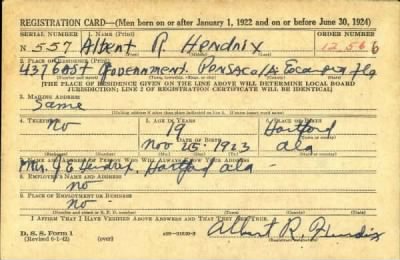 REGISTRATION CARD—(Men born on or after January 1, 1922 and on or before June 30, 1924)
SERIAL NUMBER 1. NAME (Print) ORDER NUMBER
N 557 Albert R. Hendrix 12,566
2. PLACE OF RESIDENCE (Print)
437 EAST Government. Pensacola Escambia Fla
[THE PLACE OF RESIDENCE GIVEN ON THE LINE ABOVE WILL DETERMINE LOCAL BOARD
JURISDICTION; LINE 2 OF REGISTRATION CERTIFICATE WILL BE IDENTICAL]
3. MAILING ADDRESS
Same
4. TELEPHONE 5. AGE IN YEARS
No 19 Hartford
DATE OF BIRTH
Nov 25 1923 Ala
Mrs. J E Hendrix, Hartford Ala -
8. EMPLOYER'S NAME AND ADDRESS
no -
9. PLACE OF EMPLOYMENT OR BUSINESS
no -
I AFFIRM THAT I HAVE VERIFIED ABOVE ANSWERS AND THAT THEY ARE TRUE.
D. S. S. Form 1
(Revised 6-1-42) (over)
Albert R. Hendrix